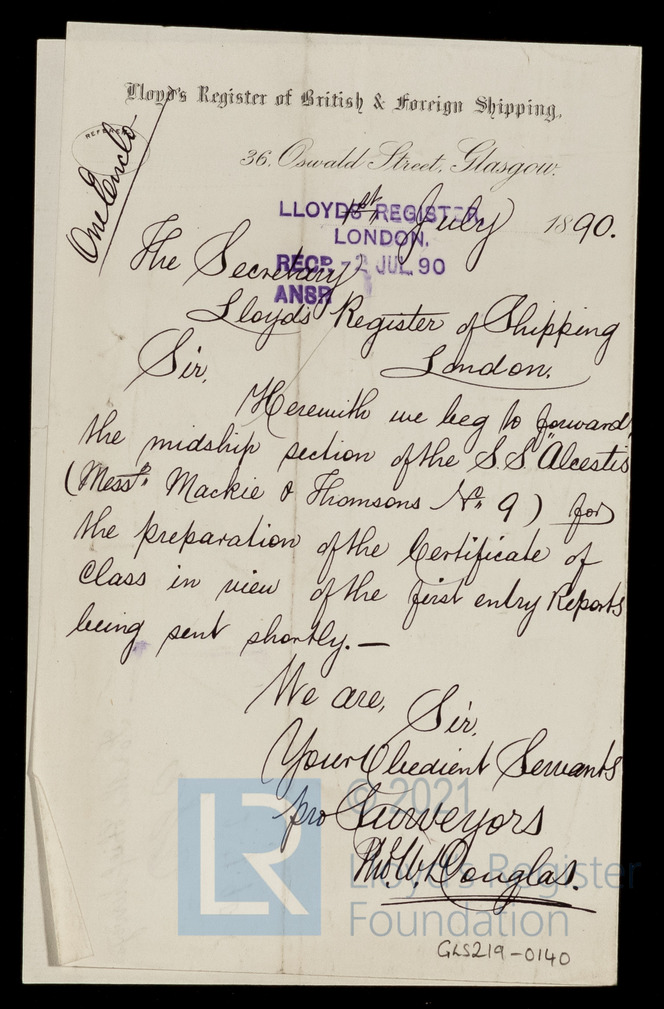 Lloyd's Register of British & Foreign Shipping,
REFEREN
One Enclo
36, Oswald Street, Glasgow.
1st July 1890.
LLOYDS REGISTER
LONDON.
RECD. -2 JUL 90
ANSR
The Secretary
Lloyds Register of Shipping
London.
Sir,
Herewith we beg to forward
the midship section of the S.S "Alcestis
(Messrs. Mackie & Thomsons No. 9) for
the preparation of the Certificate of
Class in view of the first entry Reports
being sent shortly.—
We are, Sir,
Your Obedient Servants
pro Surveyors
Tho. W. Douglas.
LR
© 2021
Lloyd's Register
Foundation
GLS219-0140